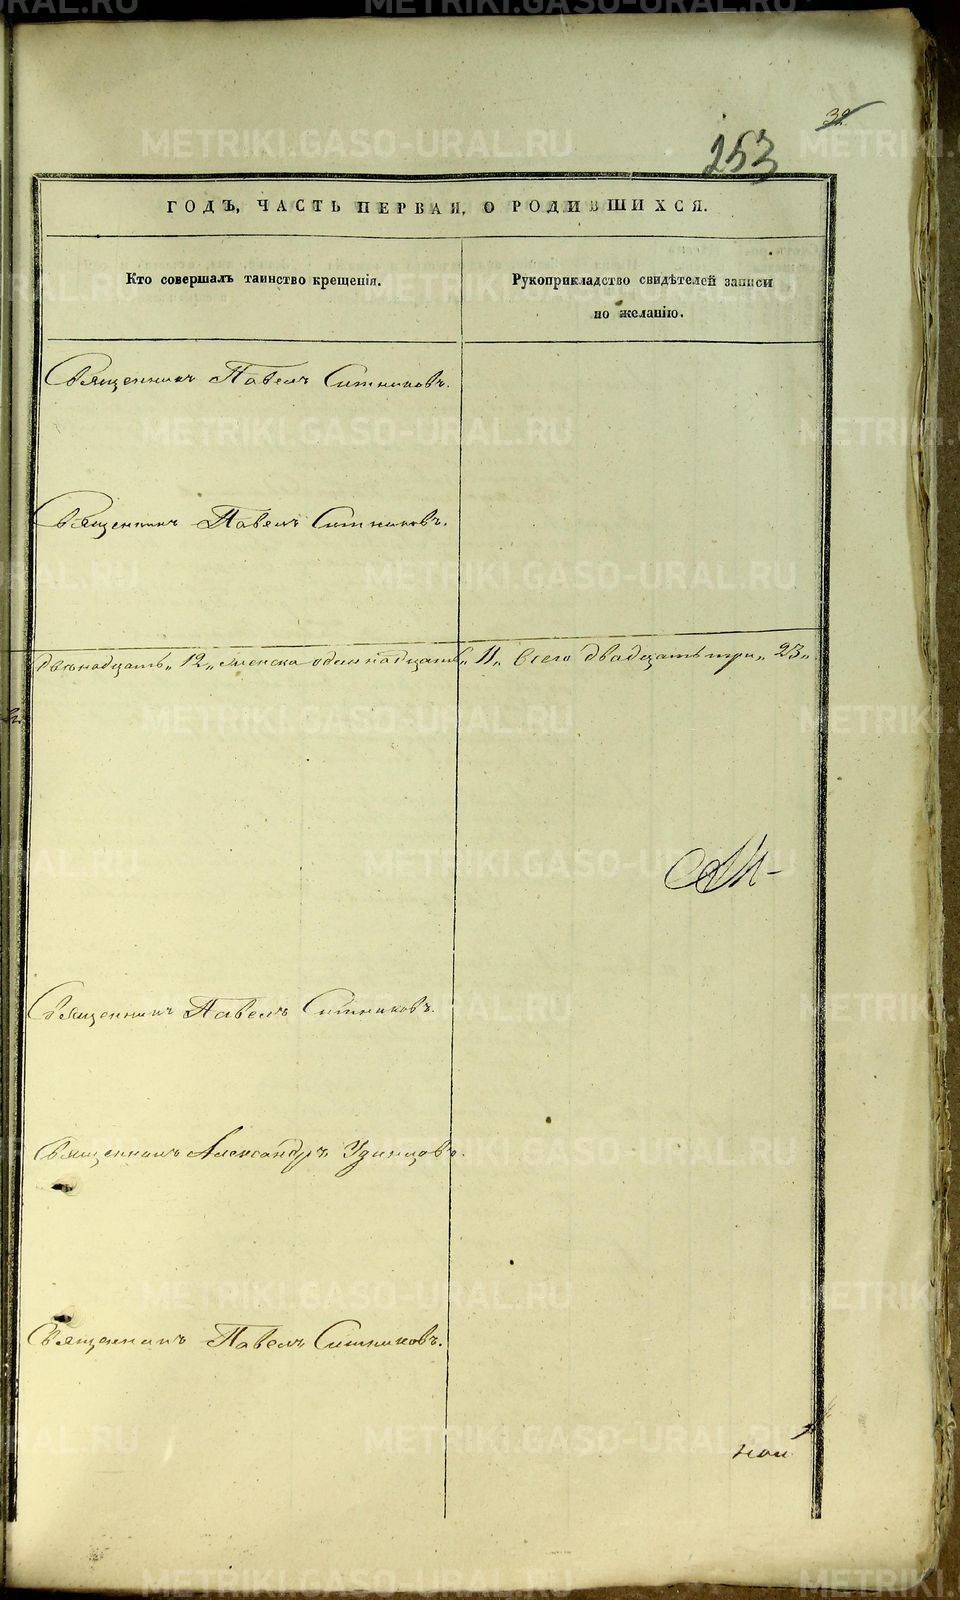 METRIKI.GASO-URAL.RU
32
253
ГОДЪ, ЧАСТЬ ПЕРВАЯ, О РОДИВШИХСЯ.
Кто совершалъ таинство крещенія.
Рукоприкладство свидѣтелей записи
по желанію.
Священникъ Павелъ Ситниковъ.
Священникъ Павелъ Ситниковъ.
двѣнадцать „12„ женска одиннадцать „11„ всего двадцать три „23„.
Священникъ Павелъ Ситниковъ.
Священникъ Александръ Удинцовъ.
Священникъ Павелъ Ситниковъ.